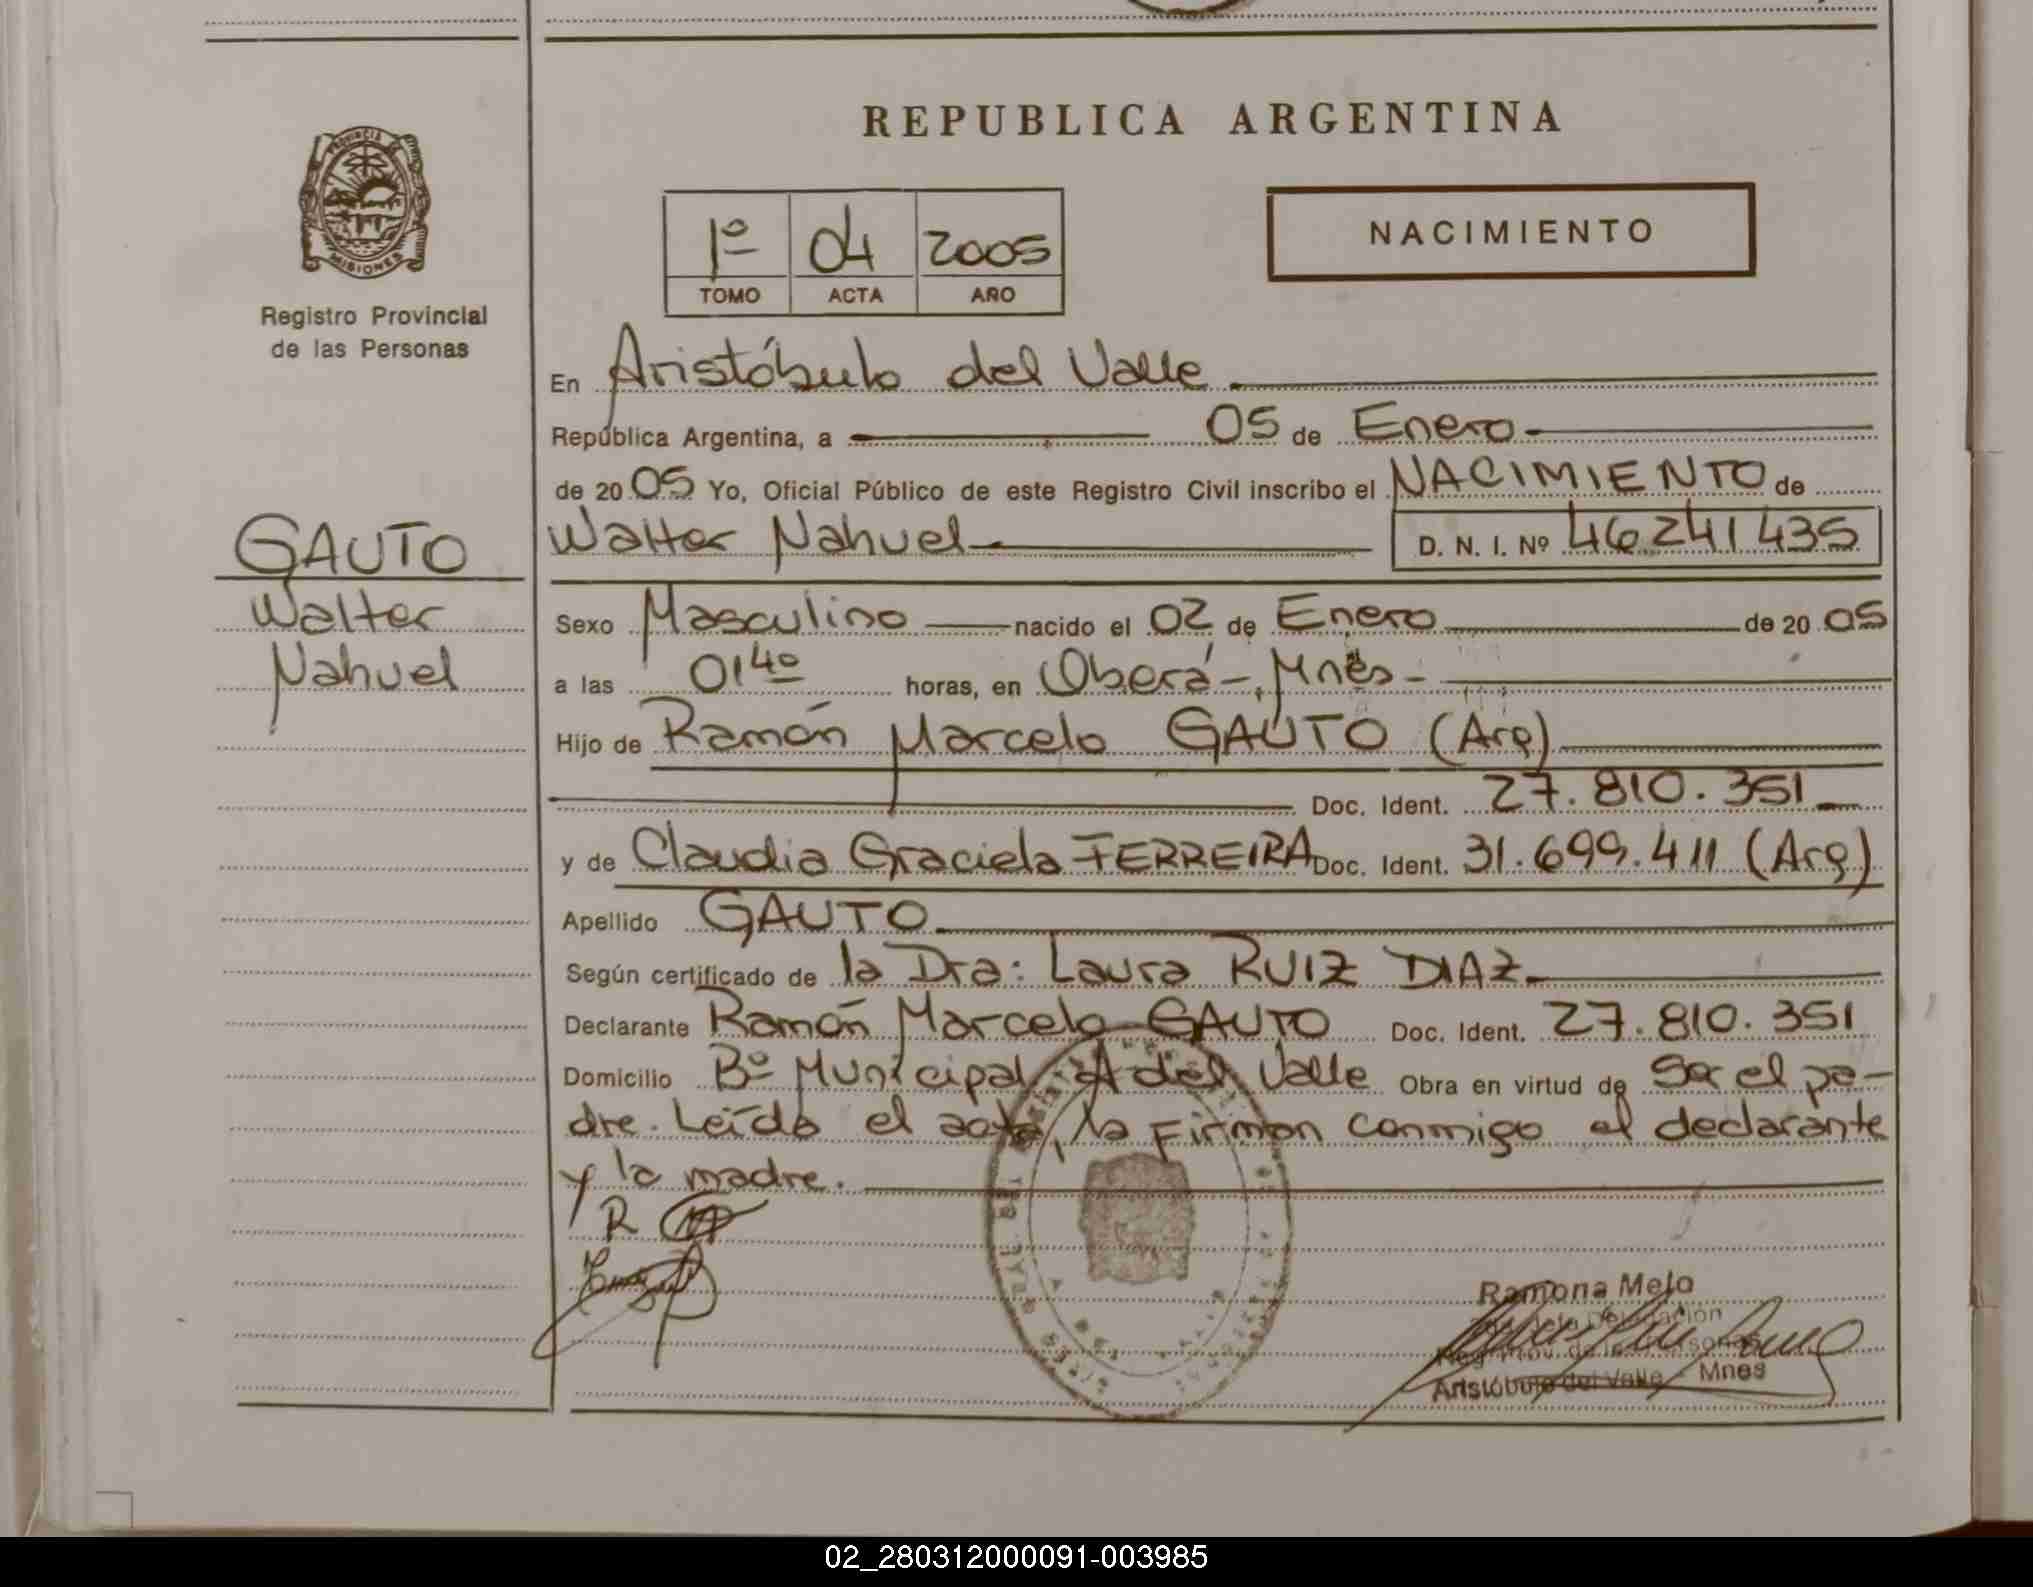 REPUBLICA ARGENTINA
PROVINCIA DE
MISIONES
Registro Provincial
de las Personas
1º 04 2005
TOMO ACTA AÑO
NACIMIENTO
En Aristóbulo del Valle
República Argentina, a 05 de Enero
de 2005 Yo, Oficial Público de este Registro Civil inscribo el NACIMIENTO de
Walter Nahuel D. N. I. Nº 46241435
GAUTO
Walter
Nahuel
Sexo Masculino nacido el 02 de Enero de 2005
a las 01 40 horas, en Oberá-, Mnes-
Hijo de Ramón Marcelo GAUTO (Arg)
Doc. Ident. 27.810.351
y de Claudia Graciela FERREIRA Doc. Ident. 31.699.411 (Arg)
Apellido GAUTO
Según certificado de la Dra: Laura RUIZ DIAZ
Declarante Ramón Marcelo GAUTO Doc. Ident. 27.810.351
Domicilio Bº Municipal A del Valle Obra en virtud de Ser el pa-
dre. Leída el acta, la Firman conmigo el declarante
y la madre.
Ramona Melo
Delegación
Reg. Prov. de las Personas
Aristóbulo del Valle - Mnes
02_280312000091-003985